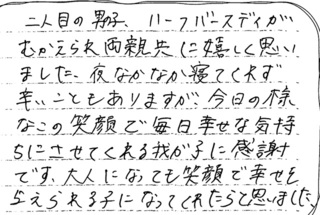 二人目の男子、ハーフバースディが
むかえられ両親共に嬉しく思い
ました、夜なかなか寝てくれず
辛いこともありますが、今日の様
なこの笑顔で毎日幸せな気持
ちにさせてくれる我が子に感謝
です、大人になっても笑顔で幸せを
与えられる子になってくれたらと思いました、